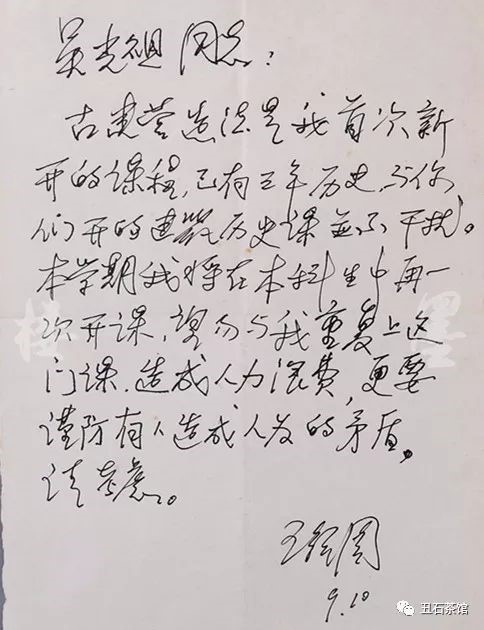 吴光祖同志：
古建营造法是我首次新
开的课程，已有三年历史，与你
们开的建筑历史课並不干扰。
本学期我将在本科生中再一
次开课，望勿与我重复上这
门课，造成人力浪费，更要
谨防有人造成人为的矛盾。
请考虑。
王
9.10
丑石茶馆